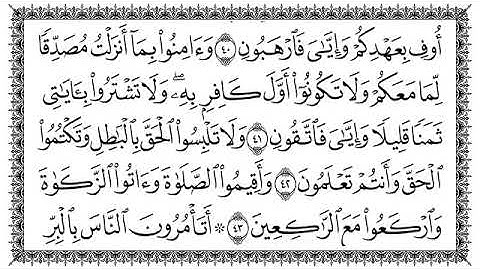 أُوفِ بِعَهْدِكُمْ وَإِيَّٰىَ فَٱرْهَبُونِ ٤٠ وَءَامِنُوا۟ بِمَآ أَنزَلْتُ مُصَدِّقًا
لِّمَا مَعَكُمْ وَلَا تَكُونُوٓا۟ أَوَّلَ كَافِرٍۭ بِهِۦ ۖ وَلَا تَشْتَرُوا۟ بِـَٔايَٰتِى
ثَمَنًا قَلِيلًا وَإِيَّٰىَ فَٱتَّقُونِ ٤١ وَلَا تَلْبِسُوا۟ ٱلْحَقَّ بِٱلْبَٰطِلِ وَتَكْتُمُوا۟
ٱلْحَقَّ وَأَنتُمْ تَعْلَمُونَ ٤٢ وَأَقِيمُوا۟ ٱلصَّلَوٰةَ وَءَاتُوا۟ ٱلزَّكَوٰةَ
وَٱرْكَعُوا۟ مَعَ ٱلرَّٰكِعِينَ ٤٣ ۞ أَتَأْمُرُونَ ٱلنَّاسَ بِٱلْبِرِّ